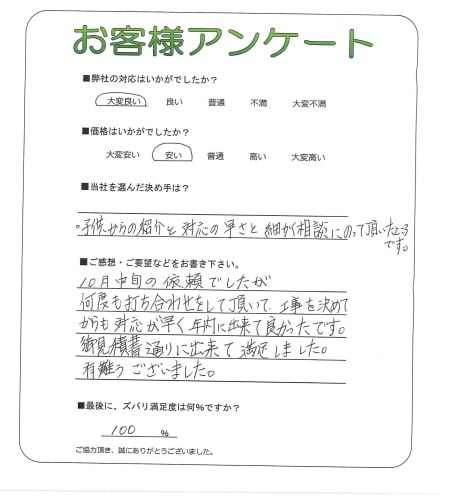 お客様アンケート
■弊社の対応はいかがでしたか？
大変良い 良い 普通 不満 大変不満
■価格はいかがでしたか？
大変安い 安い 普通 高い 大変高い
■当社を選んだ決め手は？
。子供からの紹介と対応の早さと細かく相談にのって頂いたところ
です。
■ご感想・ご要望などをお書き下さい。
10月中旬の依頼でしたが
何度も打ち合わせをして頂いて、工事を決めて
からも対応が早く年内に出来て良かったです。
御見積書通りに出来て満足しました。
有難うございました。
■最後に、ズバリ満足度は何％ですか？
100 ％
ご協力頂き、誠にありがとうございました。